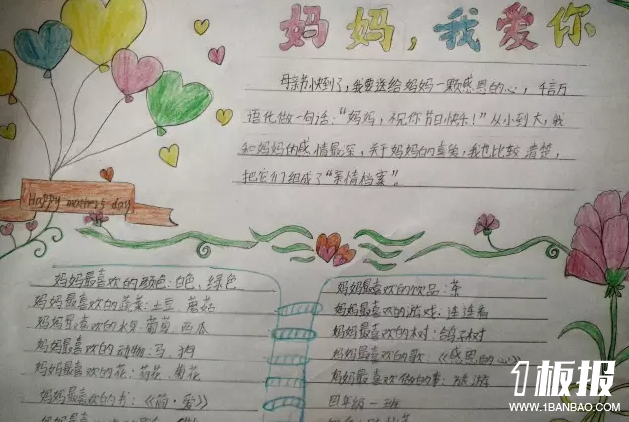 妈妈，我爱你
母亲节快到了，我要送给妈妈一颗感恩的心，千言万
语化做一句话：“妈妈，祝你节日快乐！”从小到大，我
和妈妈的感情最深，关于妈妈的喜爱，我也比较清楚，
把它们组成了“亲情档案”。
Happy mother's day
妈妈最喜欢的颜色：白色、绿色
妈妈最喜欢的蔬菜：土豆 蘑菇
妈妈最喜欢的水果：葡萄 西瓜
妈妈最喜欢的动物：马、狗
妈妈最喜欢的花：荷花、菊花
妈妈最喜欢的书：《简·爱》
妈妈最喜欢的饮品：茶
妈妈最喜欢的游戏：连连看
妈妈最喜欢的树：鸽子树
妈妈最喜欢的歌：《感恩的心》
妈妈最喜欢做的事：旅游
四年级一班
1板报
WWW.1BANBAO.COM